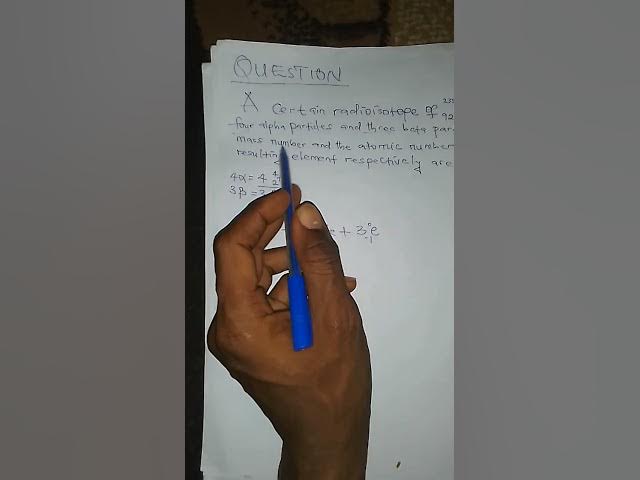 QUESTION
A certain radioisotope of 92
four alpha particles and three beta
mass number and the atomic number
resulting element respectively are
4α = 4
3β = 3
+ 3 0 -1 e